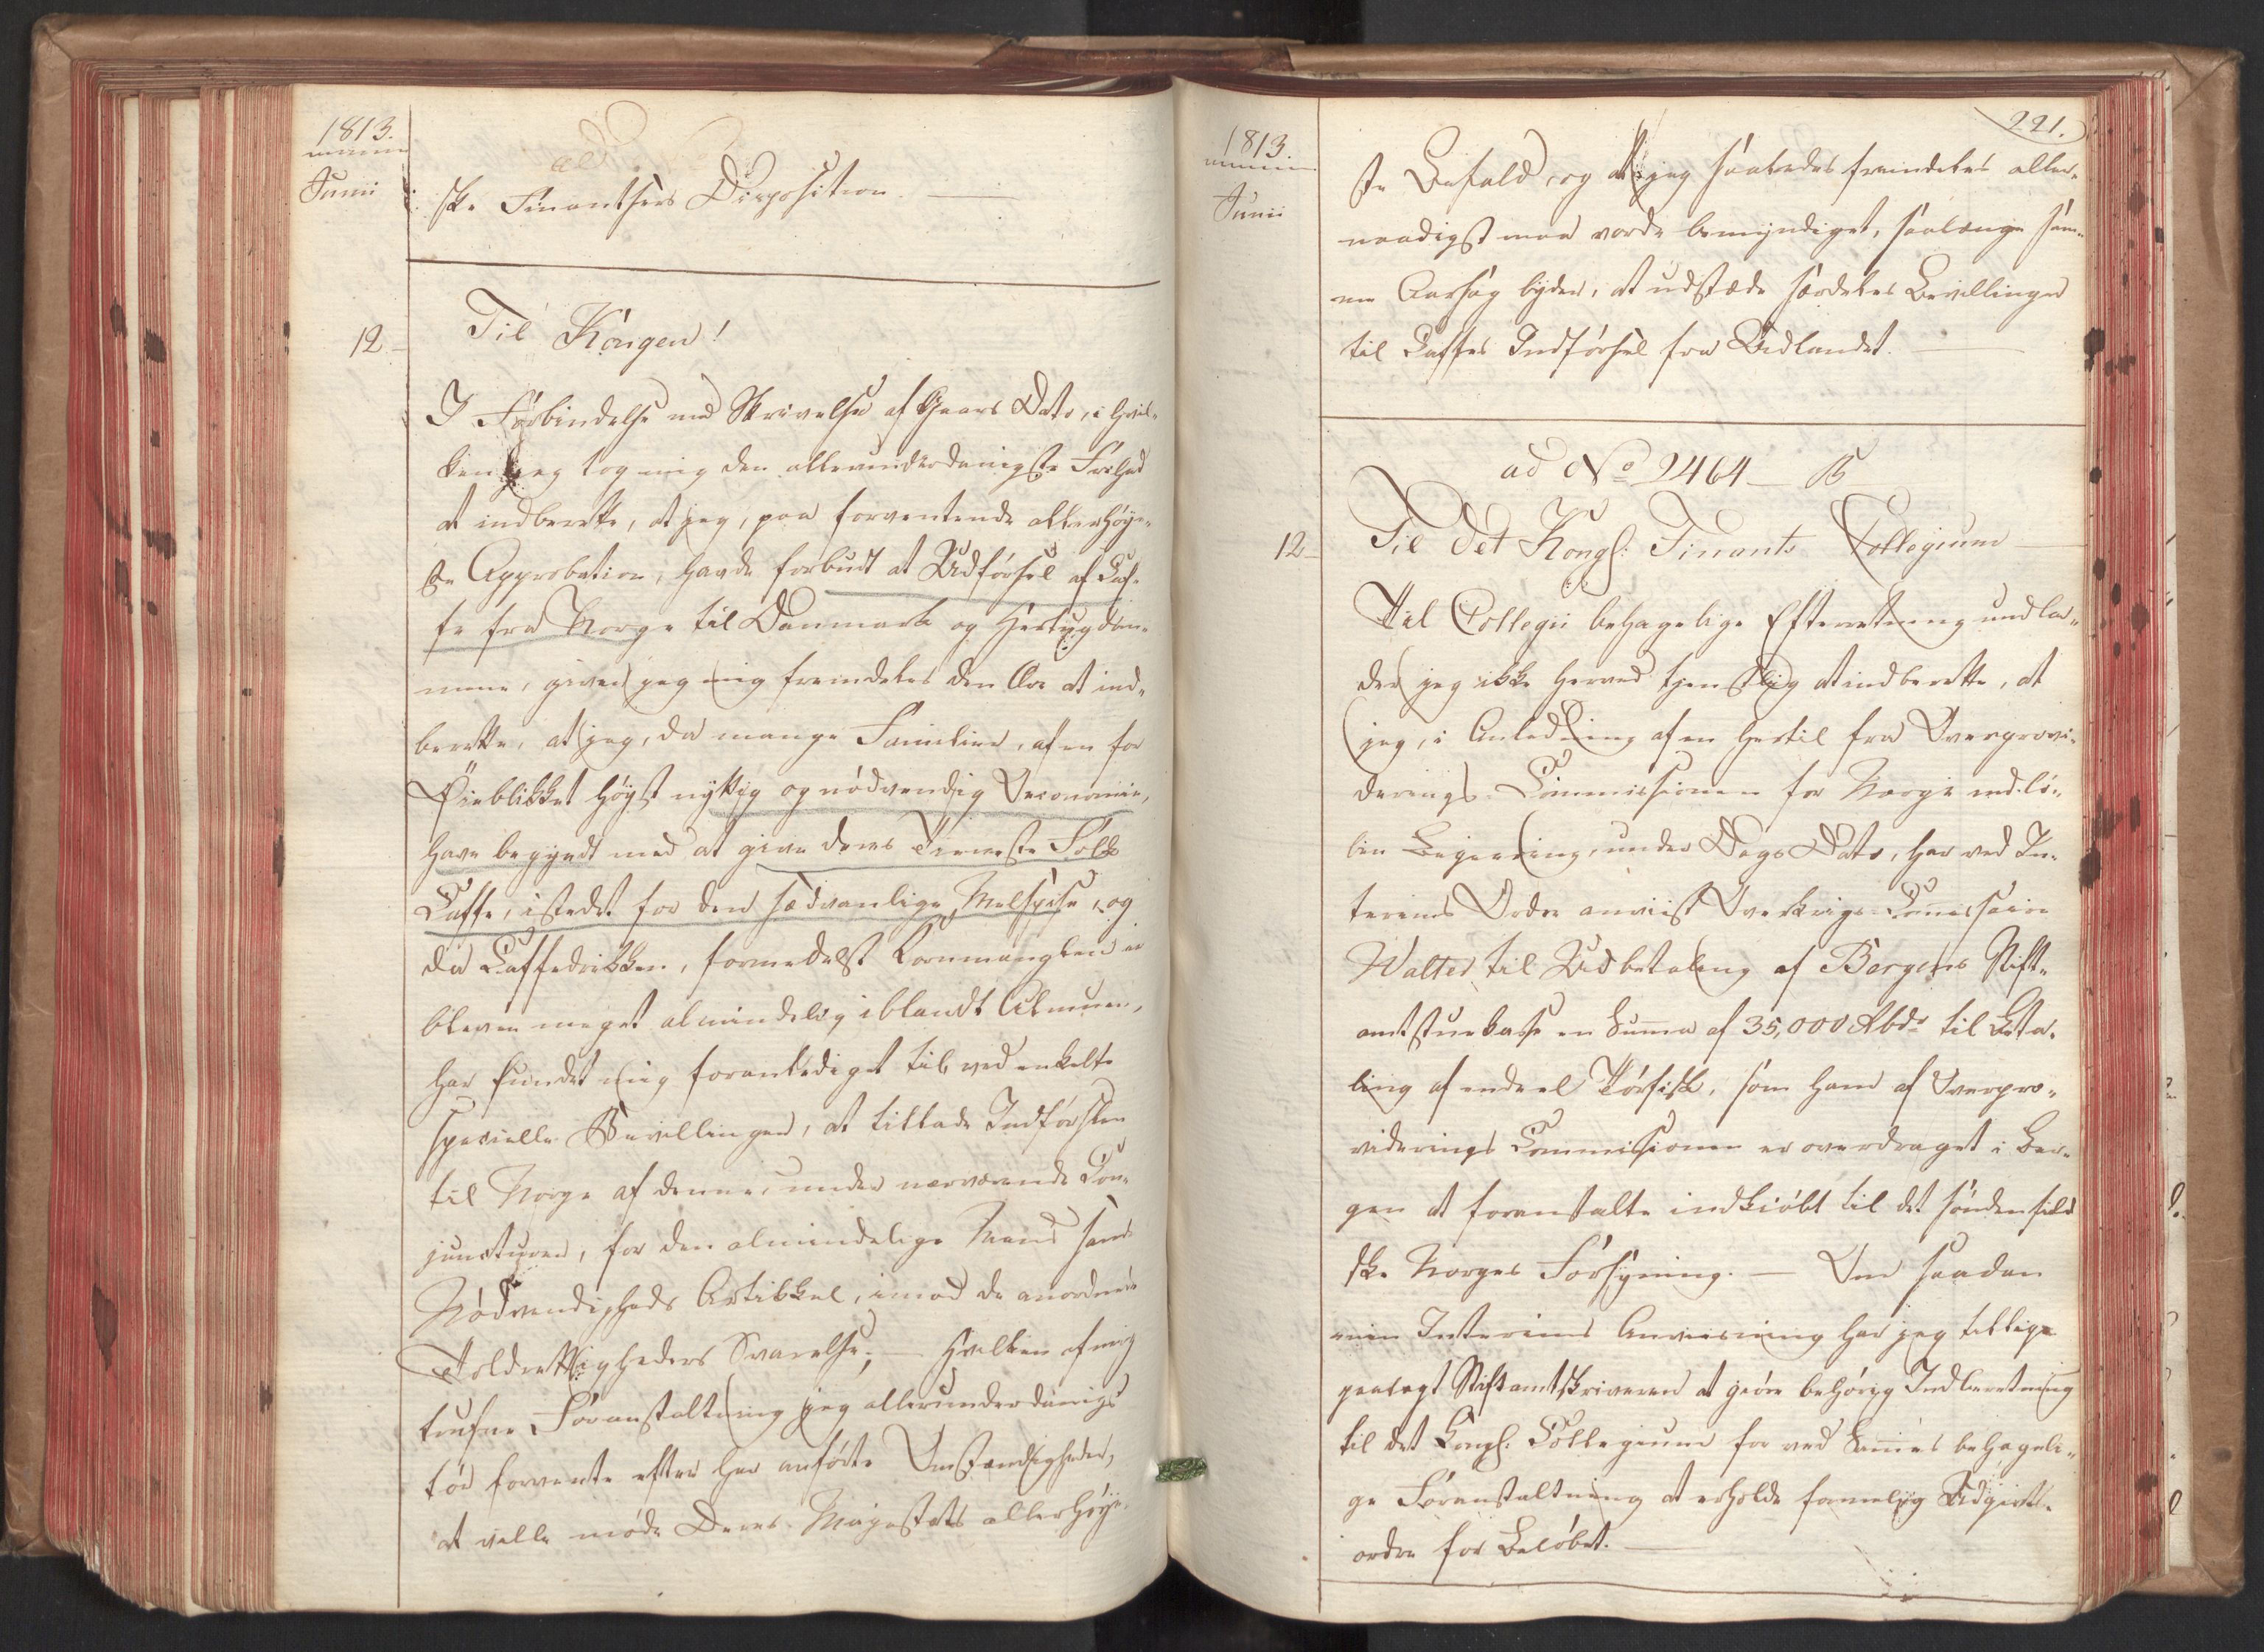 1813.
Junii
ske Finantsers Disposition
12
Til Kongen!
I Forbindelse med Skrivelse af Gaars Dato, i hvil-
ken jeg tog mig den allerunderdanigste Frihed
at indberette, at jeg, paa forventende allerhøye-
ste Approbation, havde forbudt at Udførsel af Caf-
fe fra Norge til Danmark og Hertugdøm-
mene, giver jeg mig fremdeles den Ære at ind-
berette, at jeg, da mange Familier, af en for
Øieblikket høyst nyttig og nødvendig Oeconomie,
have begyndt med at give deres Tieneste Folk
Caffe, istedet for den sædvanlige Melspise, og
da Caffedrikken, formedelst Kornmangelen er
bleven meget almindelig iblandt Almuen,
har fundet mig foranlediget til ved enkelte
specielle Bevillinger, at tillade Indførselen
til Norge af denne, under nærværende Con-
juncturer, for den almindelige Mand sande
Nødvendigheds Artikkel, imod de anordnede
Toldrettigheders Svarelse; - hvilken af mig
trufne Foranstaltning jeg allerunderdanigst
tør forvente efter her anførte Omstændigheder,
at ville møde Deres Majestæts allerhøye-
1813.
Junii
221.
ste Bifald, og at jeg saaledes fremdeles aller-
naadigst maa vorde bemyndiget, saalænge sam-
me Aarsag byder, at udstæde særdeles Bevillinger
til Caffes Indførsel fra Udlandet.
ad No 2464 - B
12
Til Det Kongl: Finants Collegium
Til Collegii behagelige Efterretning undla-
der jeg ikke herved tjenstlig at indberette, at
jeg, i Anledning af en hertil fra Overprovi-
derings-Commissionen for Norge indlø-
ben Begiering, under Dags Dato, har ved In-
terims Ordre anviist Overkrigs-Comissair
Walter til Udbetaling af Bergens Stift-
amtstuekasse en Summa af 35,000 Rbdr til Beta-
ling af endeel Tørfisk, som ham af Overpro-
viderings Commissionen er overdraget i Ber-
gen at foranstalte indkiøbt til det søndenfield-
ske Norges Forsyning. - Om saadan
min Interims Anviisning har jeg tillige
paalagt Stiftamtskriveren at giøre behørig Indberetning
til det Kongl. Collegium for ved Sammes behageli-
ge Foranstaltning at erholde formelig Udgivts-
ordre for Beløbet.